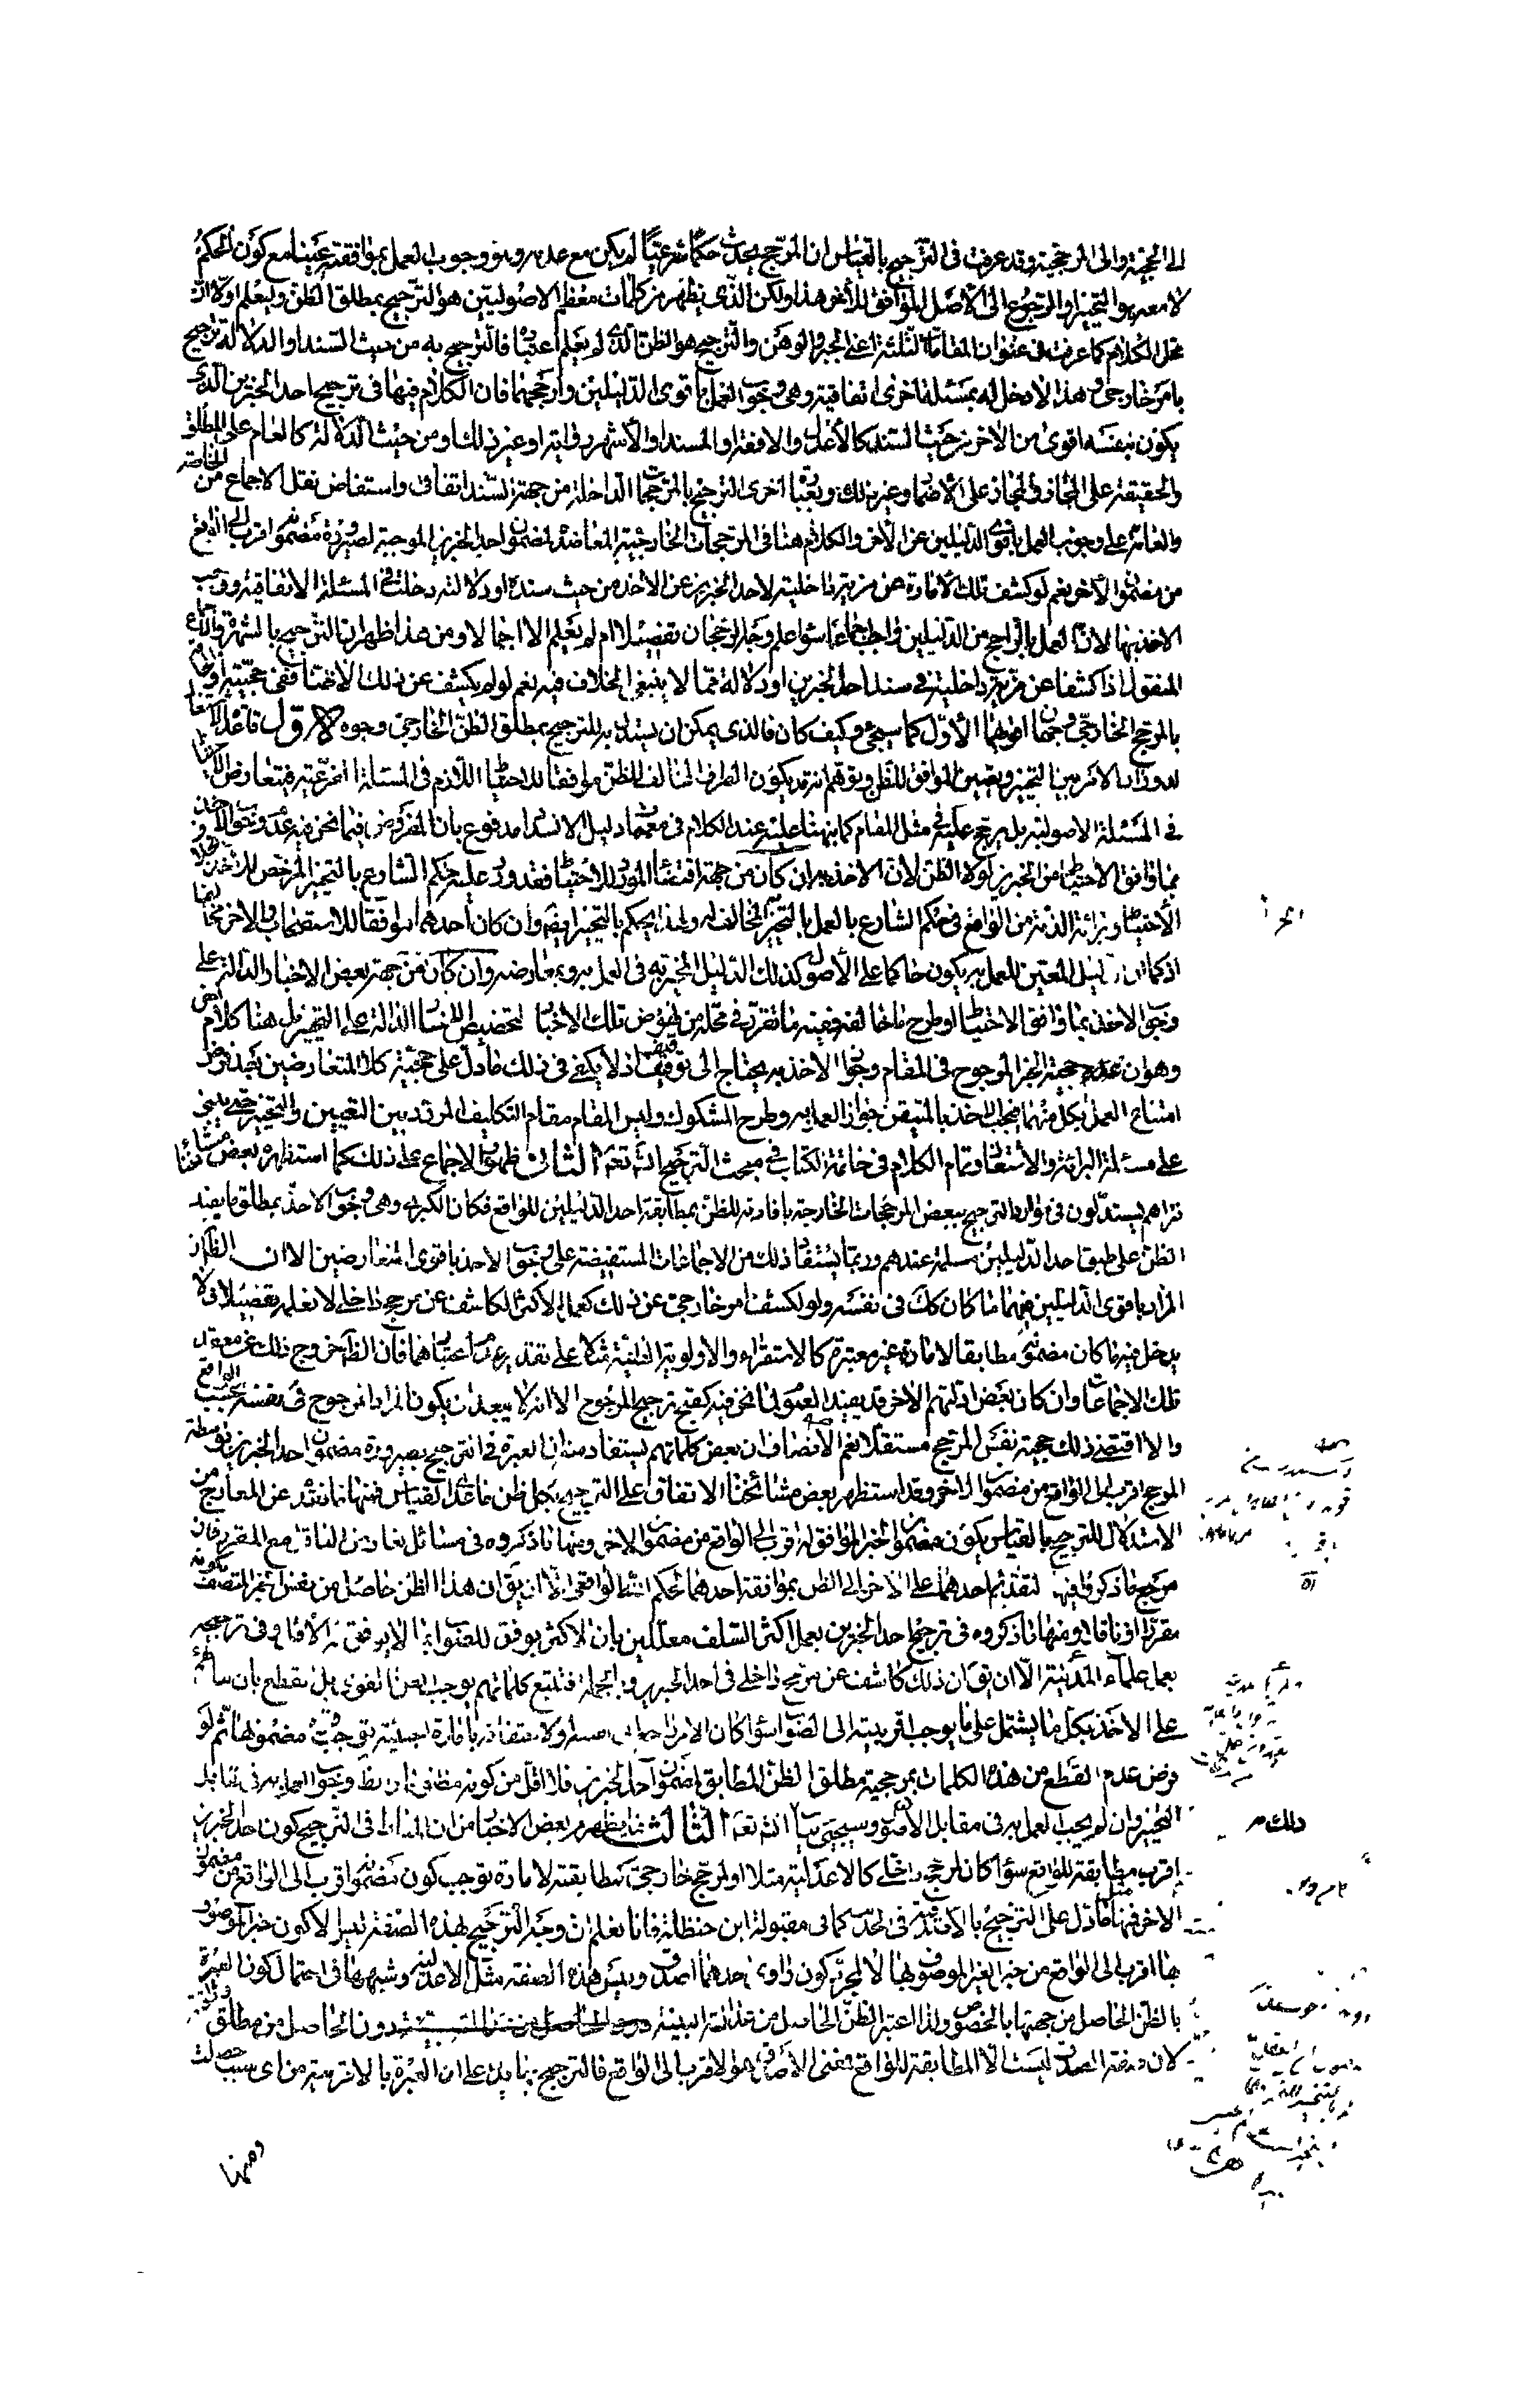 الى الحجية والى المرجحية وقد عرفت فى الترجيح بالقياس ان المرجح يحدث حكما شرعيا لم يكن مع عدمه وهو وجوب العمل بموافقته عينا مع كون الحكم
لا معه هو التخيير او الرجوع الى الاصل الموافق للاخر هذا ولكن الذى يظهر من كلمات معظم الاصوليين هو الترجيح بمطلق الظن وليعلم اولا ان
محل الكلام كما عرفت فى عنوان المقامات الثلثة اعنى الجبر والوهن والترجيح هو الظن الذى لم يعلم اعتباره فالترجيح به من حيث السند او الدلالة ترجيح
بامر خارجى وهذا لا دخل له بمسئلة اخرى اتفاقية وهى وجوب العمل باقوى الدليلين وارجحهما فان الكلام فيها فى ترجيح احد الخبرين الذى
يكون بنفسه اقوى من الاخر من حيث السند كالاعدل والافقه او المسند او الاشهر رواية او غير ذلك او من حيث الدلالة كالعام على المطلق
والحقيقة على المجاز والمجاز على الاضمار وغير ذلك وبعبارة اخرى الترجيح بالمرجحات الداخلة من جهة السند اتفاقى واستفاض نقل الاجماع من الخاصة
والعامة على وجوب العمل باقوى الدليلين عن الاخر والكلام هنا فى المرجحات الخارجية المعاضدة لمضمون احد الخبرين الموجبة لصيرورة مضمونه اقرب الى الواقع
من مضمون الاخر نعم لو كشف تلك الامارة عن مزية داخلية لاحد الخبرين عن الاخر من حيث سنده او دلالته دخلت فى المسئلة الاتفاقية ووجب
الاخذ بها لان العمل بالراجح من الدليلين واجب اجماعا سواء علم وجه الرجحان تفصيلا ام لم يعلم الا اجمالا ومن هذا ظهر ان الترجيح بالشهرة والاجماع
المنقول اذا كشفا عن مزية داخلية فى سند احد الخبرين او دلالته مما لا ينبغى الخلاف فيه نعم لو لم يكشف عن ذلك الا ظنا ففى حجيته او الحاقه
بالمرجح الخارجى وجهان اقواهما الاول كما سيجئ وكيف كان فالذى يمكن ان يستدل به للترجيح بمطلق الظن الخارجى وجوه الاول قاعدة الاشتغال
لدوران الامر بين التخيير وتعيين الموافق للظن وتوهم انه قد يكون الطرف المخالف للظن موافقا للاحتياط اللازم فى المسئلة الفرعية فيتعارض الاحتياط
فى المسئلة الاصولية بل يرجح عليه فى مثل المقام كما نبهنا عليه عند الكلام فى معممات دليل الانسداد مدفوع بان المفروض فيما نحن فيه عدم وجوب الاخذ
بما وافق الاحتياط من الخبرين لولا الظن لان الاخذ به ان كان من جهة اقتضاء المورد للاحتياط فقد ورد عليه حكم الشارع بالتخيير المرخص للاخذ بخلاف
الاحتياط وبرائة الذمة من الواقع فى حكم الشارع بالعمل بالخبر المخالف له ولهذا يحكم بالتخيير ايضا وان كان احدهما موافقا للاستصحاب والاخر مخالفا
اذ كما ان الدليل المعين للعمل به يكون حاكما على الاصول كذلك الدليل المخير به فى العمل به وبمعارضه وان كان من جهة بعض الاخبار الدالة على
وجوب الاخذ بما وافق الاحتياط وطرح ما خالفه ففيه ما تقرر فى محله من نهوض تلك الاخبار لتخصيص الاخبار الدالة على التخيير بل هنا كلام اخر
وهو ان حجية الخبر المرجوح فى المقام وجواز الاخذ به يحتاج الى توقيف اذ لا يكفى فى ذلك ما دل على حجية كلا المتعارضين بعد فرض
امتناع العمل بكل منهما فيجب الاخذ بالمتيقن جواز العمل به وطرح المشكوك وليس المقام مقام التكليف المردد بين التعيين والتخيير حتى يبنى
على مسئلة البرائة والاشتغال وتمام الكلام فى خاتمة الكتاب فى مبحث الترجيح انشاء الله تعالى الثانى ظهور الاجماع على ذلك كما استظهره بعض مشايخنا
فتراهم يستدلون فى موارد الترجيح ببعض المرجحات الخارجية بافادته للظن بمطابقة احد الدليلين للواقع فكان الكبرى وهى وجوب الاخذ بمطلق ما يفيد
الظن على طبق احد الدليلين مسلمة عندهم وربما يستفاد ذلك من الاجماعات المستفيضة على وجوب الاخذ باقوى المتعارضين الا ان الظاهر ان
المراد باقوى الدليلين منهما ما كان كك فى نفسه ولو لكشف امر خارجى عن ذلك كعمل الاكثر الكاشف عن مرجح داخلى لا نعلمه تفصيلا فلا
يدخل فيه ما كان مضمونه مطابقا لامارة غير معتبرة كالاستقراء والاولوية الظنية مثلا على تقدير عدم اعتبارهما فان الظاهر خروج ذلك عن معقد
تلك الاجماعات وان كان بعض ادلتهم الاخر قد يفيد العموم لما نحن فيه كقبح ترجيح المرجوح الا انه لا يبعد ان يكون المراد المرجوح فى نفسه بحسب الواقع
والا اقتضى ذلك حجية نفس المرجح مستقلا نعم الانصاف ان بعض كلماتهم يستفاد منه ان العبرة فى الترجيح بصيرورة مضمون احد الخبرين بواسطة
المرجح اقرب الى الواقع من مضمون الاخر وقد استظهر بعض مشائخنا الاتفاق على الترجيح بكل ظن ما عدا القياس فمنها ما تقدم عن المعارج من
الاستدلال للترجيح بالقياس بكون مضمون الخبر الموافق له اقرب الى الواقع من مضمون الاخر ومنها ما ذكروه فى مسائل تعارض الناقل مع المقرر فان
مرجع ما ذكروا فيها لتقديم احدهما على الاخر الى الظن بموافقة احدهما لحكم الله الواقعى الا ان يق ان هذا الظن حاصل من نفس الخبر المتصف بكونه
مقررا او ناقلا ومنها ما ذكروه فى ترجيح احد الخبرين بعمل اكثر السلف معللين بان الاكثر يوفق للصواب بما لا يوفق له الاقل وفى ترجيحه
بعمل علماء المدينة الا ان يق ان ذلك كاشف عن مرجح داخلى فى احد الخبرين وبالجملة فتتبع كلماتهم يوجب الظن القوى بل القطع بان بنائهم
على الاخذ بكل ما يشتمل على ما يوجب اقربيته الى الصواب سواء كان لامر راجع الى نفسه او لاحتفافه بامارة اجنبية توجب قوة مضمونها ثم لو
فرض عدم القطع من هذه الكلمات بمرجحية مطلق الظن المطابق لمضمون احد الخبرين فلا اقل من كونه مظنونا والظ وجوب العمل به فى مقابل
التخيير وان لم يجب العمل به فى مقابل الاصول وسيجئ بيانه انشاء الله تعالى الثالث ما يظهر من بعض الاخبار من ان المناط فى الترجيح كون احد الخبرين
اقرب مطابقة للواقع سواء كان لمرجح داخلى كالاعدلية مثلا او لمرجح خارجى كمطابقته لامارة توجب كون مضمونه اقرب الى الواقع من مضمون
الاخر فمنها ما دل على الترجيح بالاصدقية فى الحديث كما فى مقبولة ابن حنظلة فانا نعلم ان وجه الترجيح بهذه الصفة ليس الا كون خبر الموصوف
بها اقرب الى الواقع من خبر الغير الموصوف بها لا لمجرد كون راوى احدهما اصدق وليس هذه الصفة مثل الاعدلية وشبهها فى احتمال كون العبرة
بالظن الحاصل من جهتها بالخصوص ولذا اعتبر الظن الحاصل من عدالة البينة دون الحاصل من مطلق وثاقته
لان صفة الصدق ليست الا المطابقة للواقع فمعنى الاصدق هو الاقرب الى الواقع فالترجيح بها يدل على ان العبرة بالاقربية من اى سبب حصلت
ومنها